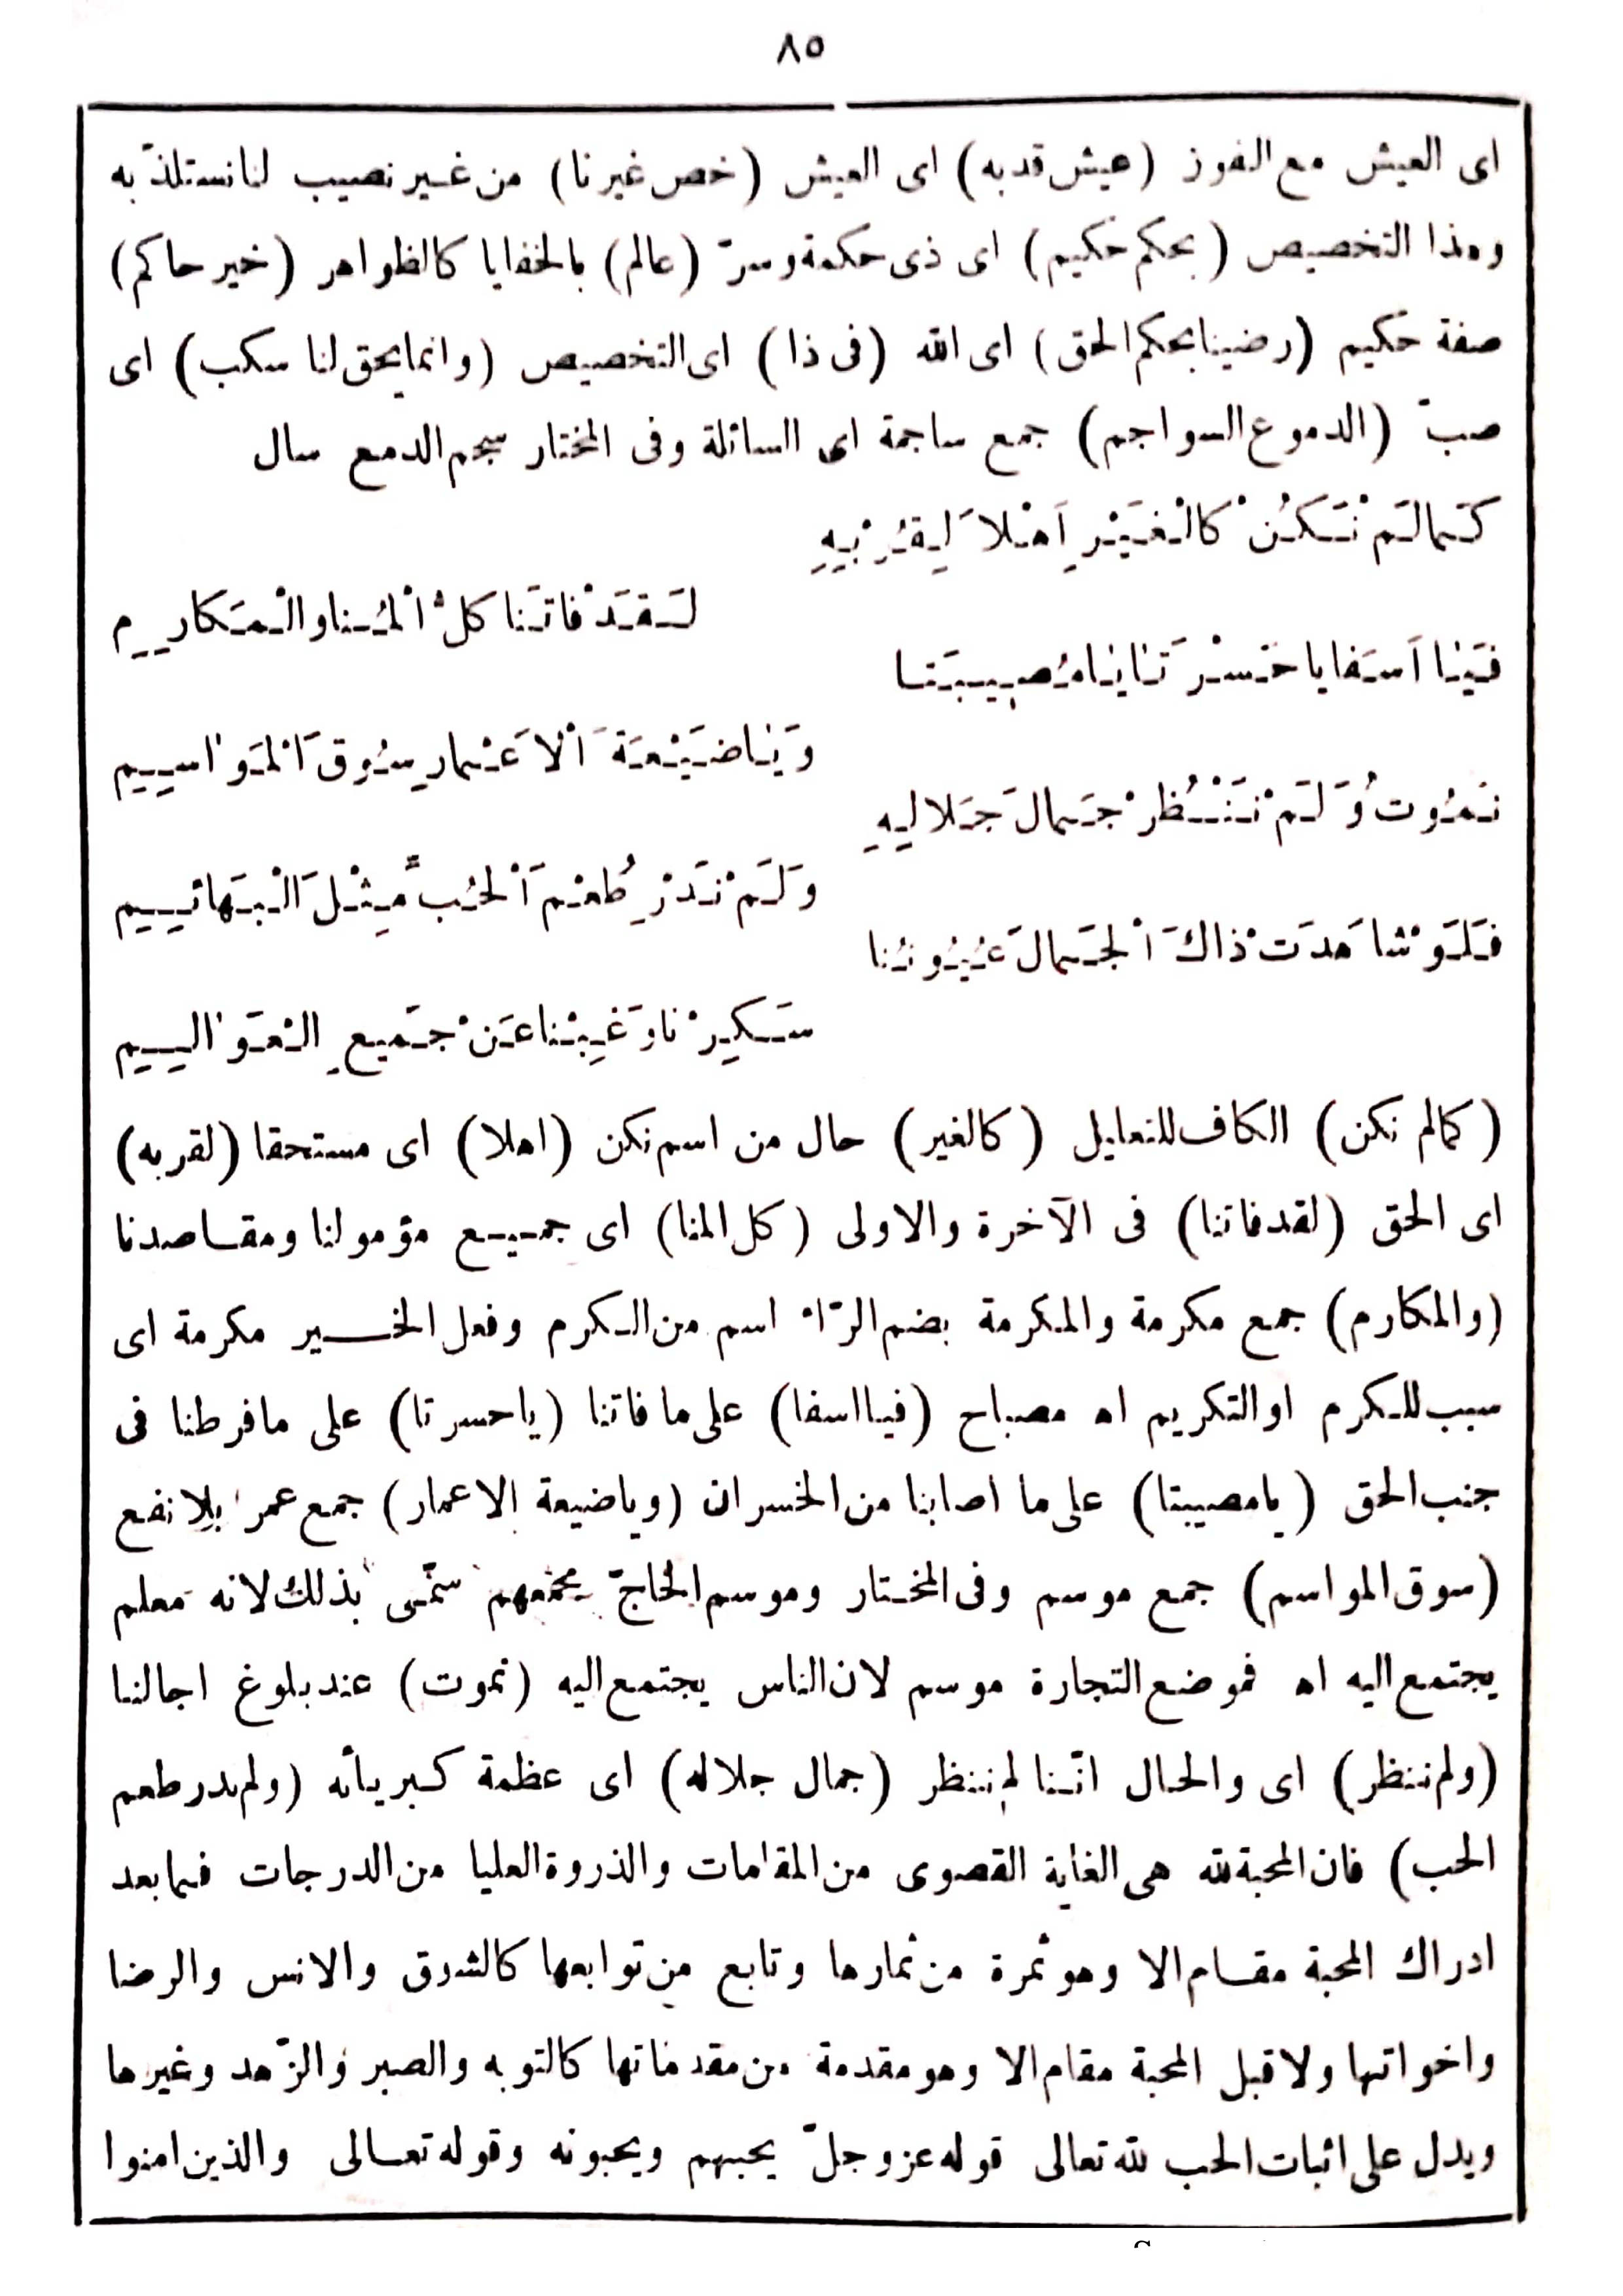 ٨٥
اى العيش مع الفوز (عيش قد به) اى العيش (خص غيرنا) من غير نصيب لنا نستلذّ به
وهذا التخصيص (بحكم حكيم) اى ذى حكمة وسرّ (عالم) بالخفايا كالظواهر (خير حاكم)
صفة حكيم (رضينا بحكم الحق) اى الله (فى ذا) اى التخصيص (وانما يحق لنا سكب) اى
صبّ (الدموع السواجم) جمع ساجمة اى السائلة وفى المختار سجم الدمع سال
كَمَا لَمْ نَكُنْ كَالْغَيْرِ اَهْلاً لِقُرْبِهِ
لَقَدْ فَاتَنَا كُلُّ الْمُنَا وَالْمَكَارِمِ
فَيَا اَسَفَا يَا حَسْرَتَا يَا مُصِيبَتَا
وَيَا ضَيْعَةَ الْاَعْمَارِ سُوقَ الْمَوَاسِيمِ
نَمُوتُ وَلَمْ نَنْظُرْ جَمَالَ جَلَالِهِ
وَلَمْ نَدْرِ طُعْمَ الْحُبِّ مِثْلَ الْبَهَائِيمِ
فَلَوْ شَاهَدَتْ ذَاكَ الْجَمَالَ عُيُونُنَا
سَكِرْنَا وَغِبْنَا عَنْ جَمِيعِ الْعَوَالِيمِ
(كمالم نكن) الكاف للتعليل (كالغير) حال من اسم نكن (اهلا) اى مستحقا (لقربه)
اى الحق (لقد فاتنا) فى الآخرة والاولى (كل المنا) اى جميع مؤمولنا ومقاصدنا
(والمكارم) جمع مكرمة والمكرمة بضم الرّاء اسم من الكرم وفعل الخير مكرمة اى
سبب للكرم او التكريم اه مصباح (فيا اسفا) على ما فاتنا (يا حسرتا) على ما فرطنا فى
جنب الحق (يا مصيبتا) على ما اصابنا من الخسران (ويا ضيعة الاعمار) جمع عمر بلا نفع
(سوق المواسم) جمع موسم وفى المختار وموسم الحاجّ مجمعهم سمّى بذلك لانه معلم
يجتمع اليه اه فموضع التجارة موسم لان الناس يجتمع اليه (نموت) عند بلوغ اجالنا
(ولم ننظر) اى والحال انّنا لم ننظر (جمال جلاله) اى عظمة كبريائه (ولم ندر طعم
الحب) فان المحبة لله هى الغاية القصوى من المقامات والذروة العليا من الدرجات فما بعد
ادراك المحبة مقام الا وهو ثمرة من ثمارها وتابع من توابعها كالشوق والانس والرضا
واخواتها ولا قبل المحبة مقام الا وهو مقدمة من مقدماتها كالتوبه والصبر والزّهد وغيرها
ويدل على اثبات الحب لله تعالى قوله عز وجلّ يحبهم ويحبونه وقوله تعالى والذين امنوا